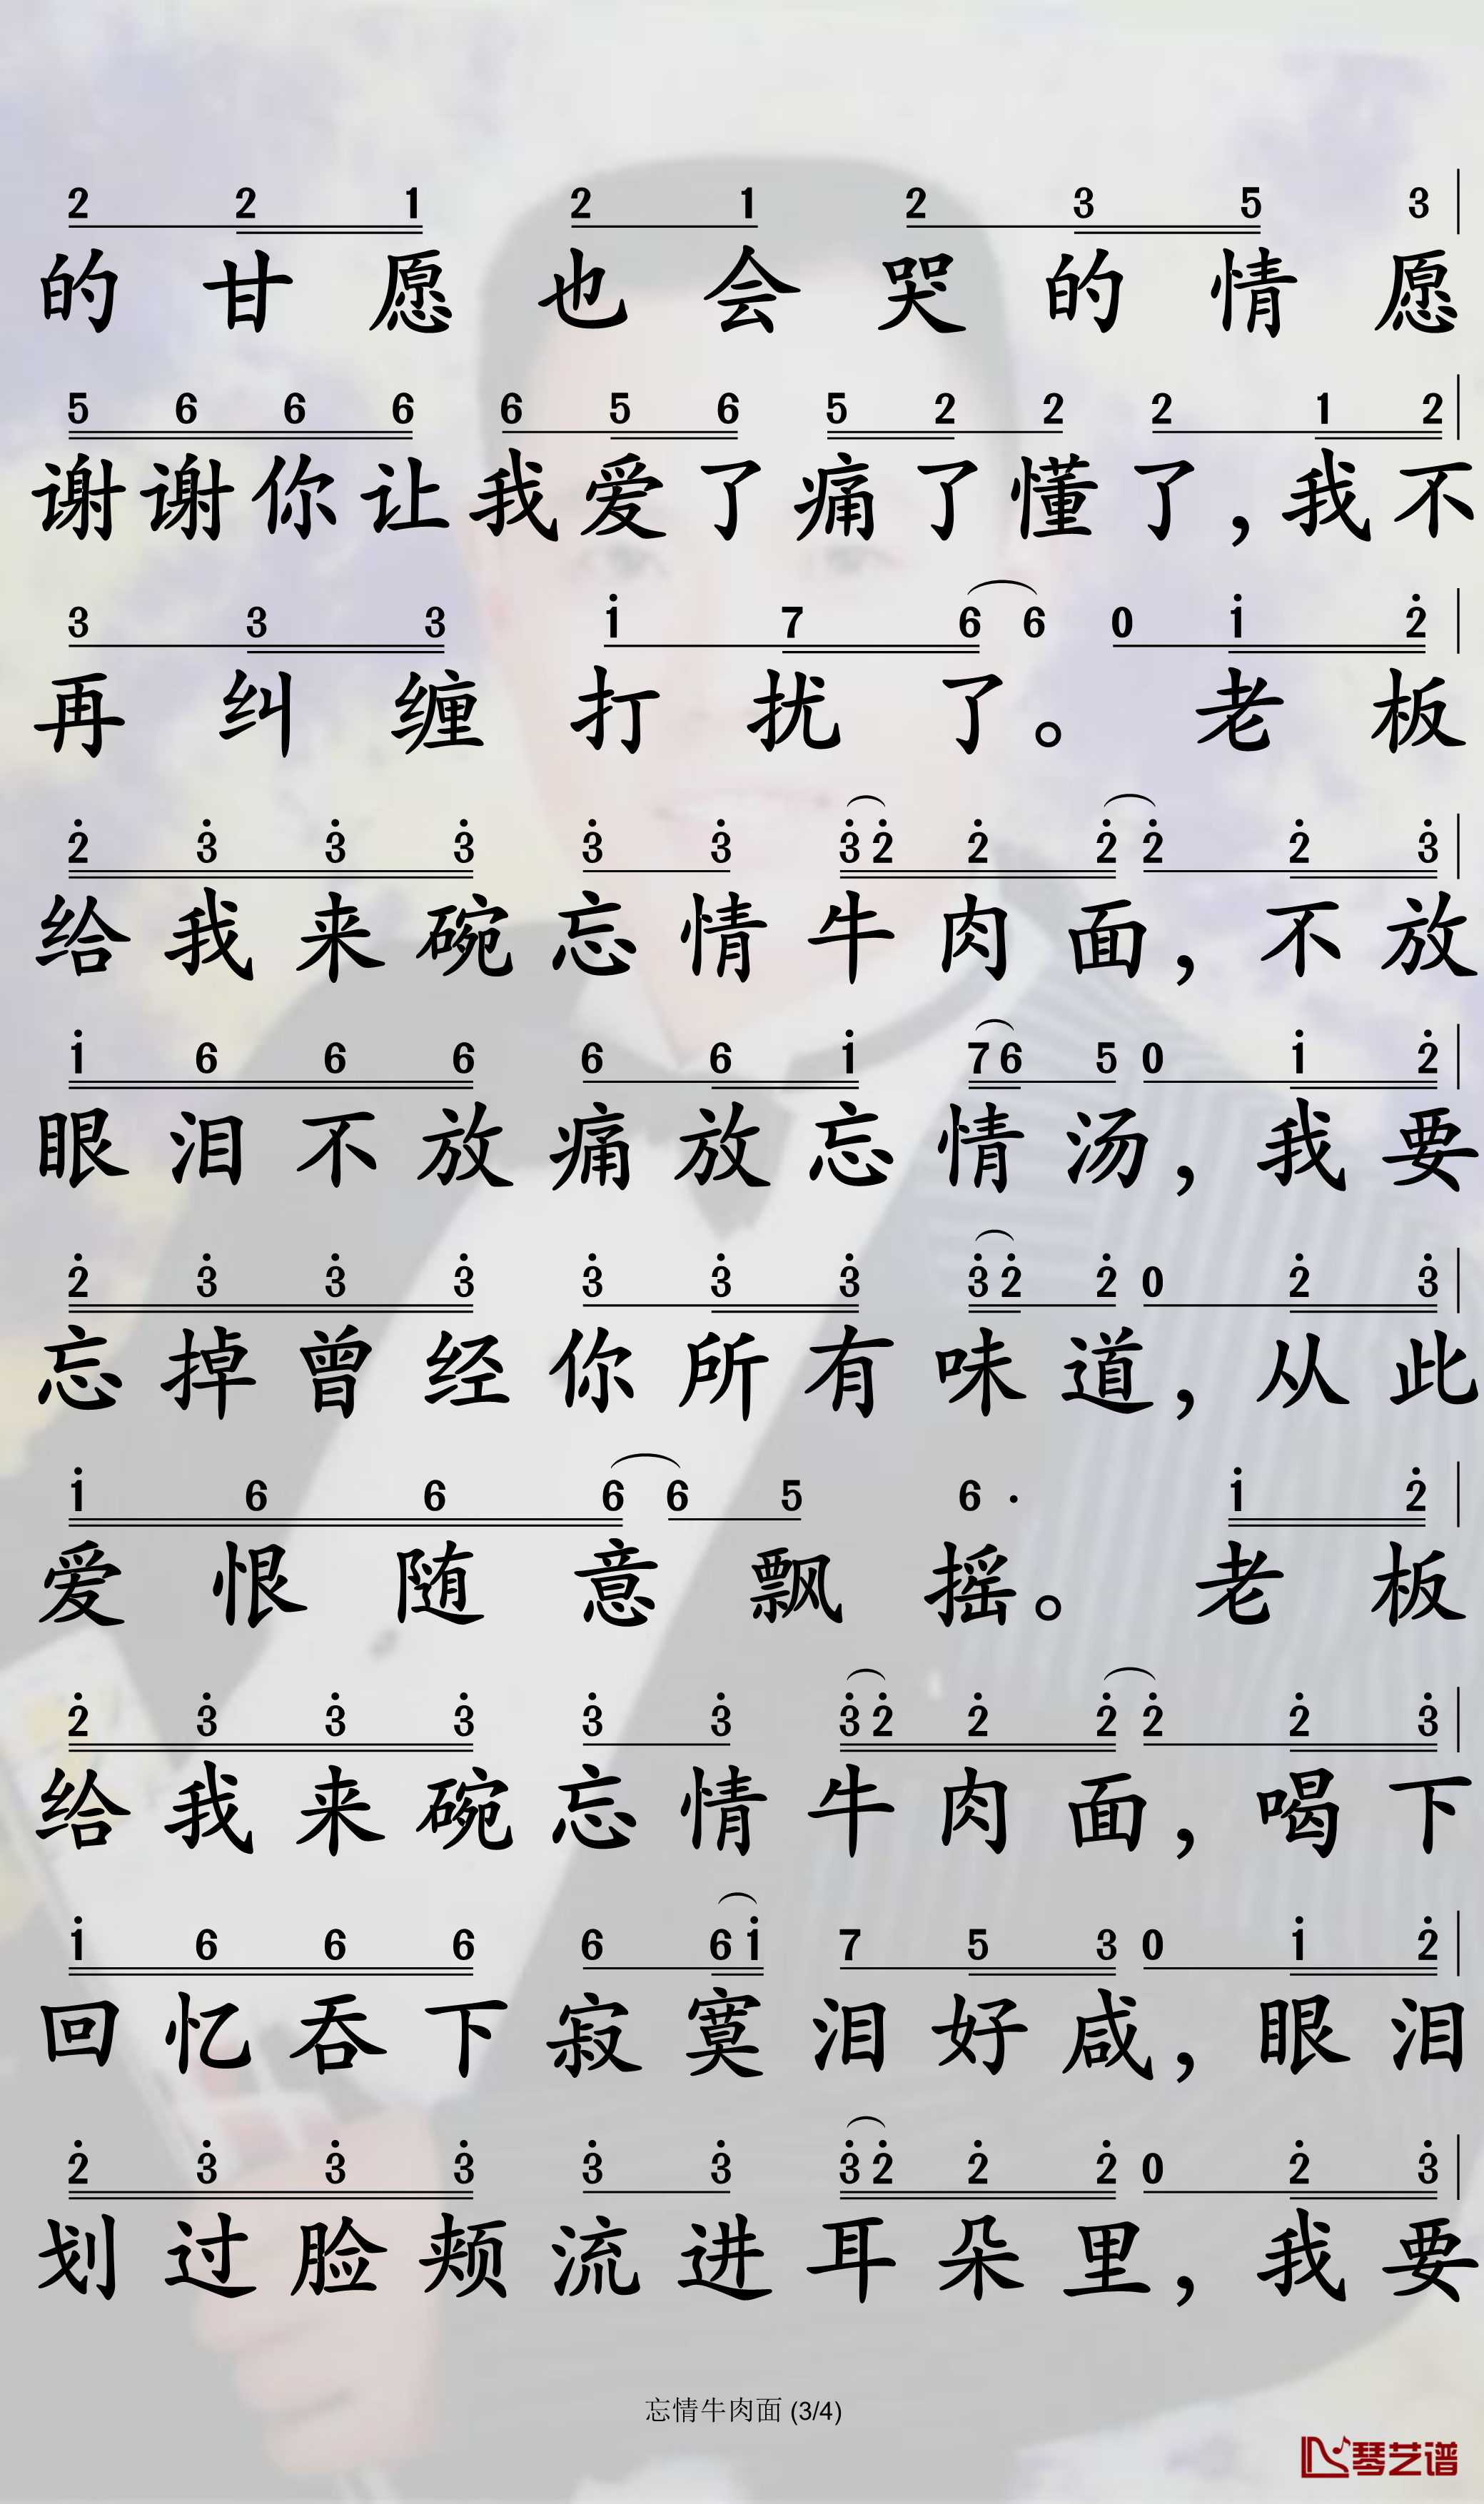 2 2 1 2 1 2 3 5 3
的甘愿也会哭的情愿
5 6 6 6 6 5 6 5 2 2 2 1 2
谢谢你让我爱了痛了懂了，我不
3 3 3 i 7 6 6 0 i 2̇
再纠缠打扰了。老板
2̇ 3̇ 3̇ 3̇ 3̇ 3̇ 3̇ 2̇ 2̇ 2̇ 2̇ 2̇ 3̇
给我来碗忘情牛肉面，不放
i 6 6 6 6 6 i 7 6 5 0 i 2̇
眼泪不放痛放忘情汤，我要
2̇ 3̇ 3̇ 3̇ 3̇ 3̇ 3̇ 3̇ 2̇ 2̇ 0 2̇ 3̇
忘掉曾经你所有味道，从此
i 6 6 6 6 5 6 · i 2̇
爱恨随意飘摇。老板
2̇ 3̇ 3̇ 3̇ 3̇ 3̇ 3̇ 2̇ 2̇ 2̇ 2̇ 2̇ 3̇
给我来碗忘情牛肉面，喝下
i 6 6 6 6 6 i 7 5 3 0 i 2̇
回忆吞下寂寞泪好咸，眼泪
2̇ 3̇ 3̇ 3̇ 3̇ 3̇ 3̇ 2̇ 2̇ 2̇ 0 2̇ 3̇
划过脸颊流进耳朵里，我要
忘情牛肉面 (3/4)
琴艺谱